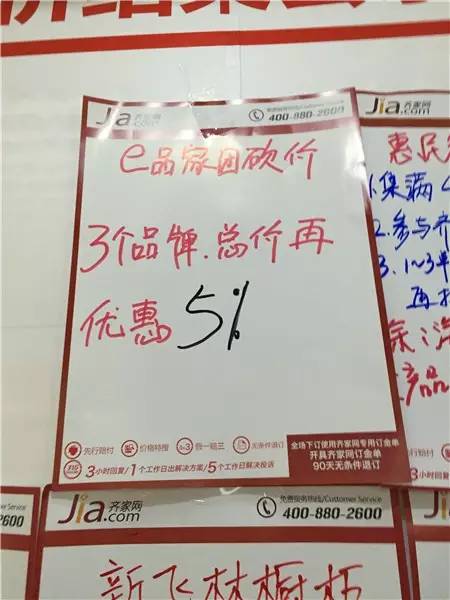 Jia.com 齐家网
免费服务热线/Customer Service
400-880-2600
e品家团砍价
3个品牌.总价再
优惠5%
先行赔付 价格特搜 假一赔三 无条件退订
3小时回复/1个工作日出解决方案/5个工作日解决投诉
全场下订使用齐家网专用订金单
开具齐家网订金单
90天无条件退订
Jia.com 齐家网
惠民
1.集满
2.参与齐
3.1~3
再
产品
先行赔付
3小时回复/1个
2600
Jia.com 齐家网
免费服务热线/Customer Service
400-880-2600
新飞林橱柜